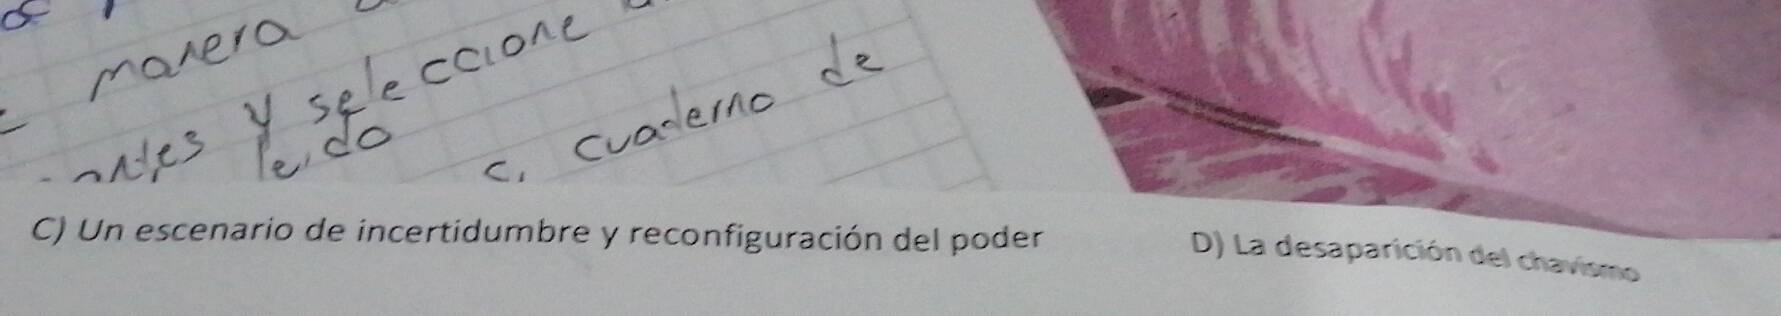 manera
y seleccione
leido
c. cuaderno de
C) Un escenario de incertidumbre y reconfiguración del poder
D) La desaparición del chavismo